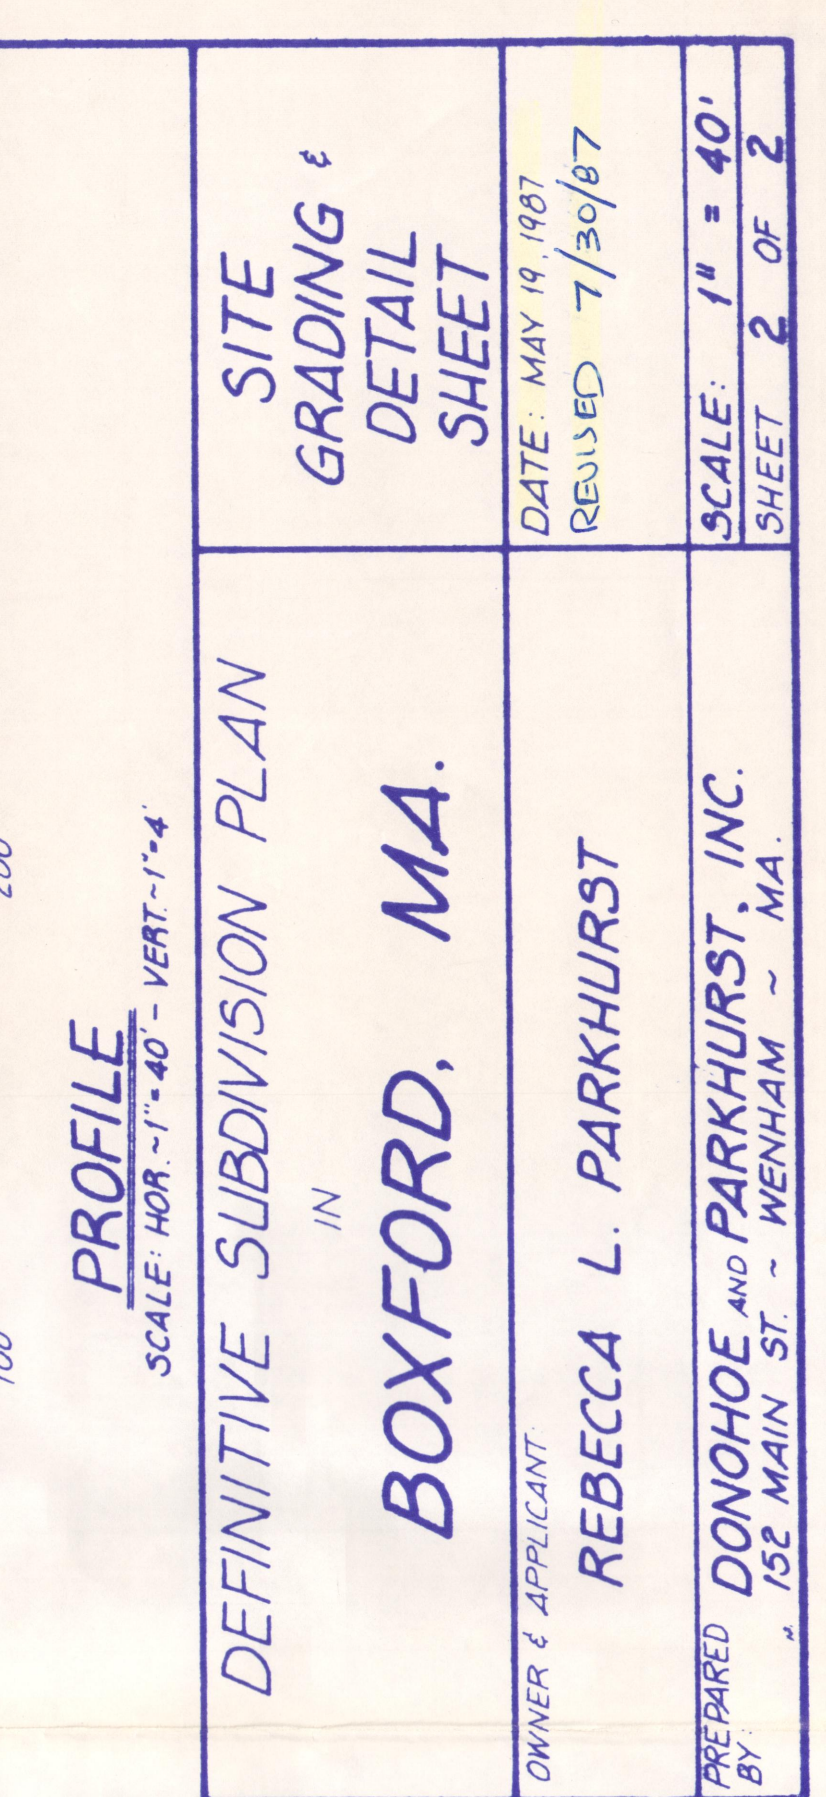 100
200
PROFILE
SCALE: HOR.~1"=40' – VERT.~1"=4'
DEFINITIVE SUBDIVISION PLAN
IN
BOXFORD, MA.
SITE
GRADING &
DETAIL
SHEET
OWNER & APPLICANT:
REBECCA L. PARKHURST
DATE: MAY 19, 1987
REVISED 7/30/87
PREPARED
BY:
DONOHOE AND PARKHURST, INC.
152 MAIN ST. ~ WENHAM ~ MA.
SCALE: 1" = 40'
SHEET 2 OF 2